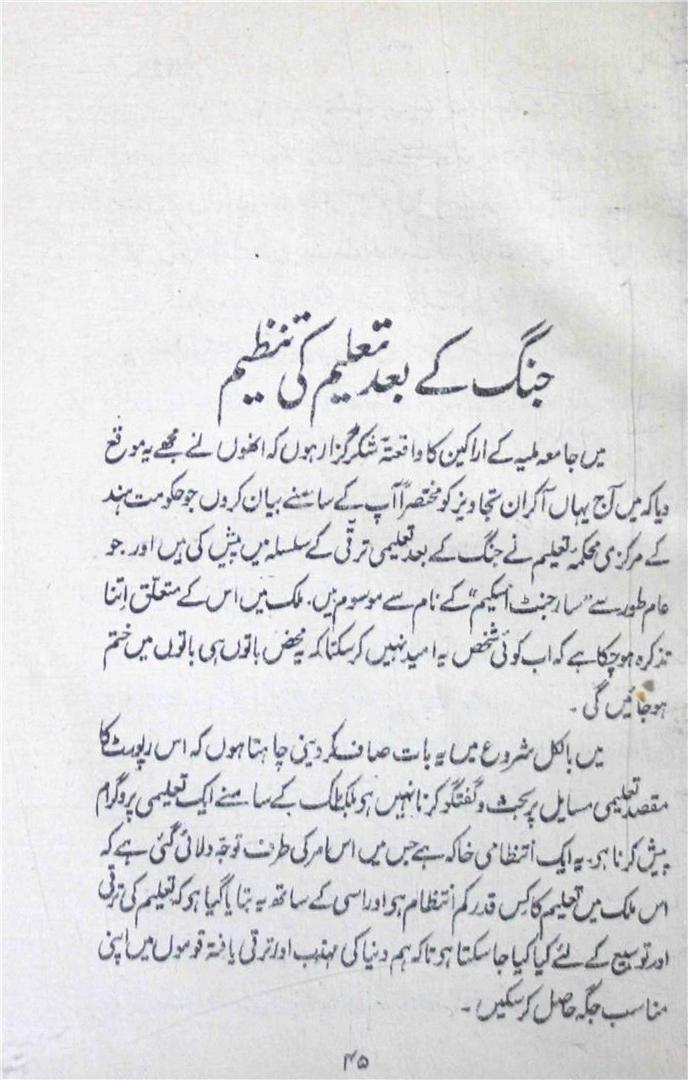 جنگ کے بعد تعلیم کی تنظیم
میں جامعہ ملیہ کے اراکین کا واقعتہً شکر گزار ہوں کہ انھوں نے مجھے یہ موقع
دیا کہ میں آج یہاں آکر ان تجاویز کو مختصراً آپ کے سامنے بیان کروں جو حکومت ہند
کے مرکزی محکمۂ تعلیم نے جنگ کے بعد تعلیمی ترقی کے سلسلہ میں پیش کی ہیں اور جو
عام طور سے "سارجنٹ اسکیم" کے نام سے موسوم ہیں۔ ملک میں اس کے متعلق اتنا
تذکرہ ہو چکا ہے کہ اب کوئی شخص یہ امید نہیں کر سکتا کہ یہ محض باتوں ہی باتوں میں ختم
ہو جائیں گی۔
میں بالکل شروع میں یہ بات صاف کر دینی چاہتا ہوں کہ اس رپورٹ کا
مقصد تعلیمی مسایل پر بحث و گفتگو کرنا نہیں ہو بلکہ ملک کے سامنے ایک تعلیمی پروگرام
پیش کرنا ہو۔ یہ ایک انتظامی خاکہ ہے جس میں اس امر کی طرف توجہ دلائی گئی ہے کہ
اس ملک میں تعلیم کا کس قدر کم انتظام ہو اور اسی کے ساتھ یہ بتایا گیا ہو کہ تعلیم کی ترقی
اور توسیع کے لئے کیا کیا جا سکتا ہو تاکہ ہم دنیا کی مہذب اور ترقی یافتہ قوموں میں اپنی
مناسب جگہ حاصل کر سکیں۔
۴۵